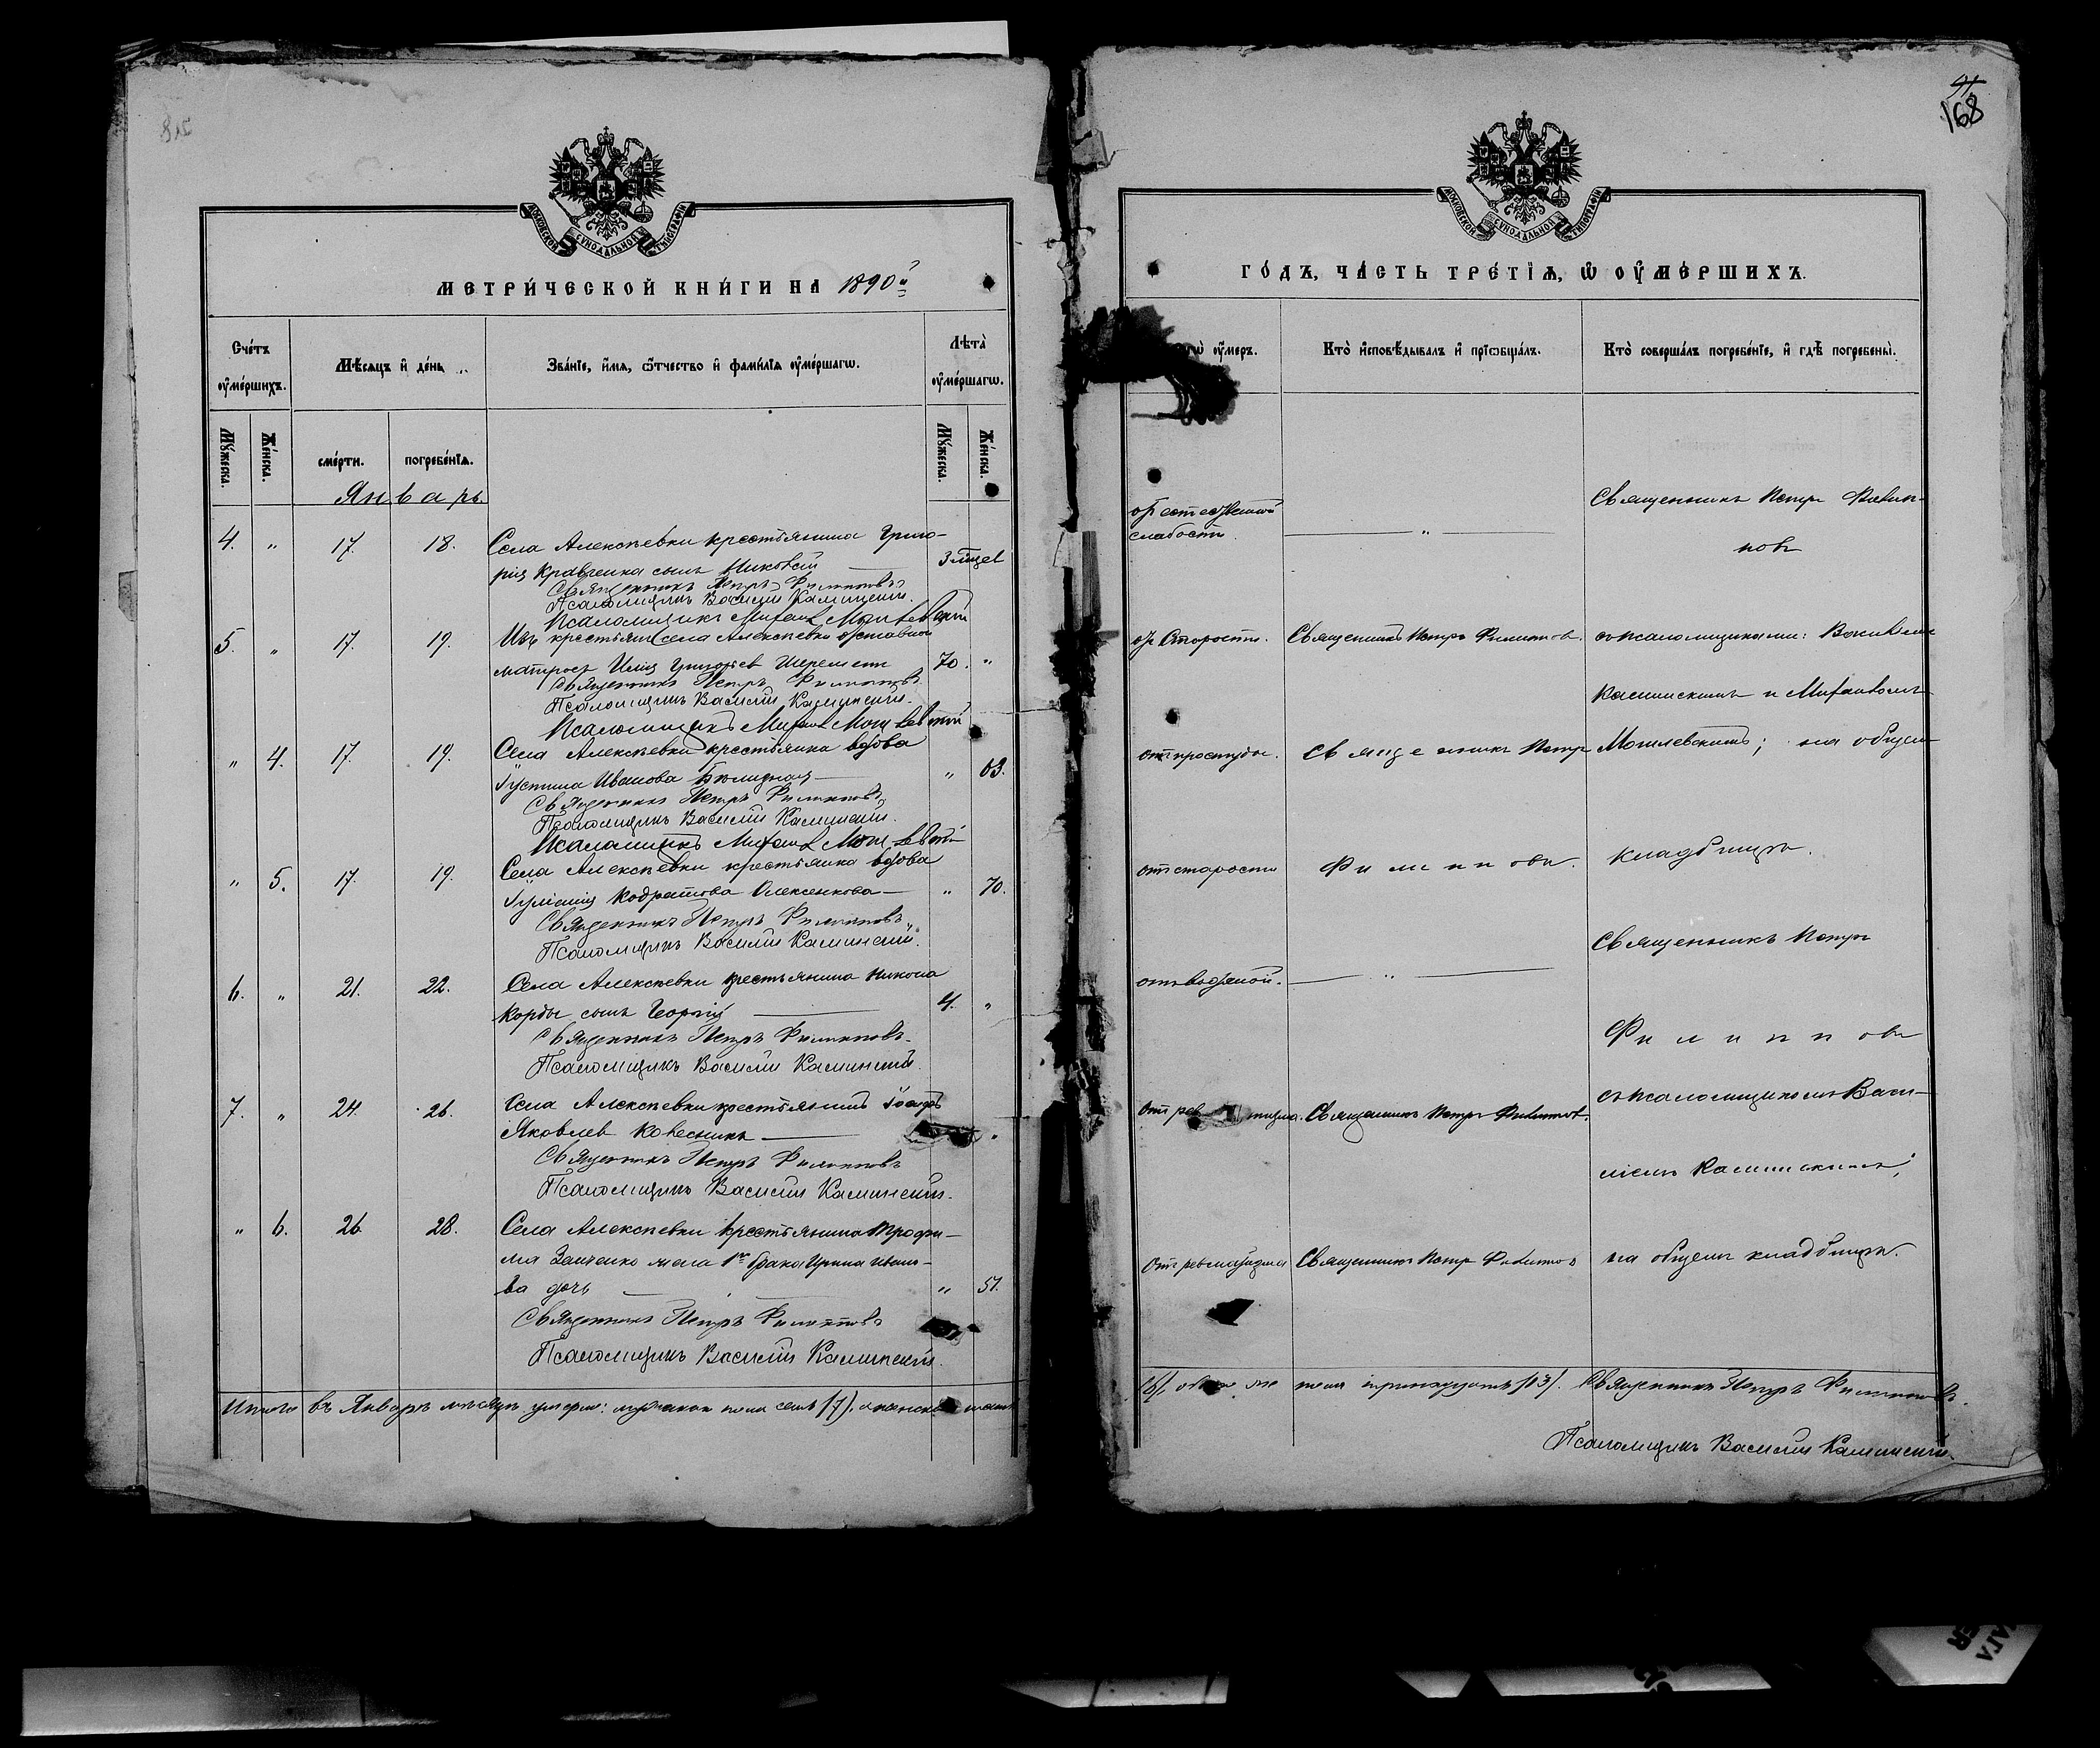 168
МОСКОВСКОЙ СУНОДАЛЬНОЙ ТИПОГРАФІИ
МЕТРИ́ЧЕСКОЙ КНИ́ГИ НА 1890й
Сче́тъ ᲂу҆ме́ршихъ.
Мѣ́сяцъ и҆ де́нь
Зва́нїе, и҆́мя, ѻ҆́тчество и҆ фами́лїя ᲂу҆ме́ршагѡ.
Лѣта̀ ᲂу҆ме́ршагѡ.
Мꙋ́жеска.
Же́нска.
сме́рти.
погребе́нїя.
Мꙋ́жеска.
Же́нска.
Январь.
4. " 17. 18. Села Алексѣевки крестьянина Григо-
рія Кравченка сынъ 3 мѣсяц
Священникъ Петръ Филипповъ
Псаломщикъ Василій Калинскій.
Псаломщикъ Михаил Могилевскій
5. " 17. 19. Изъ крестьян села Алексѣевки отставной
матрос Илія Григорьев Шеремет 70. "
Священникъ Петръ Филипповъ
Псаломщикъ Василій Калинскій.
Псаломщикъ Михаил Могилевскій
" 4. 17. 19. Села Алексѣевки крестьянка вдова
Іустина Иванова " 63.
Священникъ Петръ Филипповъ
Псаломщикъ Василій Калинскій.
Псаломщикъ Михаил Могилевскій
" 5. 17. 19. Села Алексѣевки крестьянка вдова
Іуліанія Кодратова Олексенкова " 70.
Священникъ Петръ Филипповъ.
Псаломщикъ Василій Калинскій.
6. " 21. 22. Села Алексѣевки крестьянина Никона
Корды сынъ Георгій 4. "
Священникъ Петръ Филипповъ.
Псаломщикъ Василій Калинскій.
7. " 24. 26. Села Алексѣевки крестьянинъ
Яковлев Колесникъ "
Священникъ Петръ Филипповъ
Псаломщикъ Василій Калинскій.
" 6. 26 28. Села Алексѣевки крестьянина Трофи-
ма жена 1го брака Ирина Ивано-
ва дочь " 51.
Священникъ Петръ Филипповъ
Псаломщикъ Василій Калинскій.
Итого въ Январѣ мѣсяцѣ умерло: мужеска пола семь /7/, а женска шесть
МОСКОВСКОЙ СУНОДАЛЬНОЙ ТИПОГРАФІИ
ГО́ДЪ, ЧА́СТЬ ТРЕ́ТЇЯ, Ѡ҆ ᲂУ҆МЕ́РШИХЪ.
ᲂу҆́меръ.
Кто̀ и҆сповѣ́дывалъ и҆ прїѡбща́лъ.
Кто̀ соверша́лъ погребе́нїе, и҆ гдѣ̀ погребены̀.
Священникъ Петръ Филип-
от естественной
слабости. "
повъ
от старости. Священникъ Петръ Филиппов съ псаломщиками: Василіем
Калинскимъ и Михаиломъ
от простуды. Священникъ Петр Могилевскимъ; на общем
от старости Филипповъ. кладбищѣ.
Священникъ Петръ
от водяной. "
Филипповъ
от рев тизма. Священникъ Петръ Филиппов. съ псаломщикомъ Васи-
ліемъ Калинскимъ;
От ревматизма Священникъ Петръ Филиппов на общемъ кладбищѣ.
/6/, обоего же пола тринадцать /13/. Священникъ Петръ Филипповъ.
Псаломщикъ Василій Калинскій.